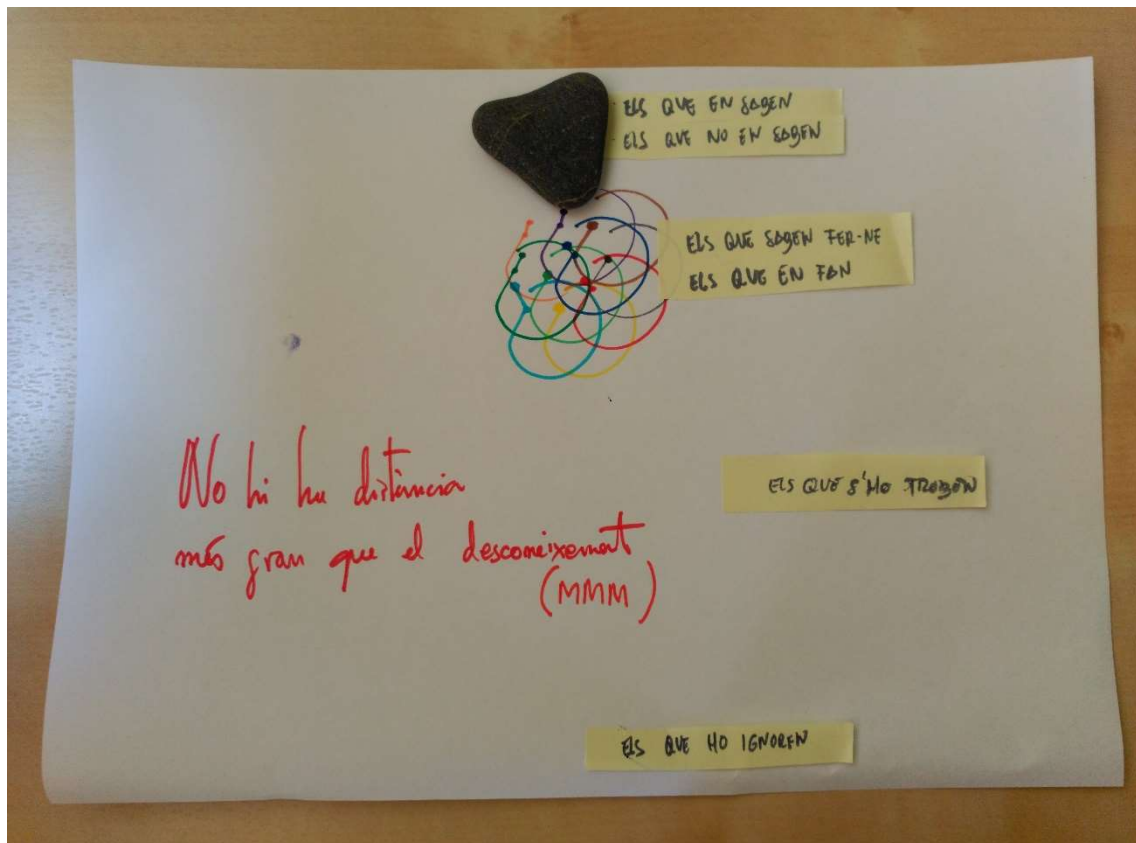 ELS QUE EN SABEN
ELS QUE NO EN SABEN
ELS QUE SABEN FER-NE
ELS QUE EN FAN
No hi ha distància
més gran que el desconeixement
(MMM)
ELS QUE S'HO TROBEN
ELS QUE HO IGNOREN